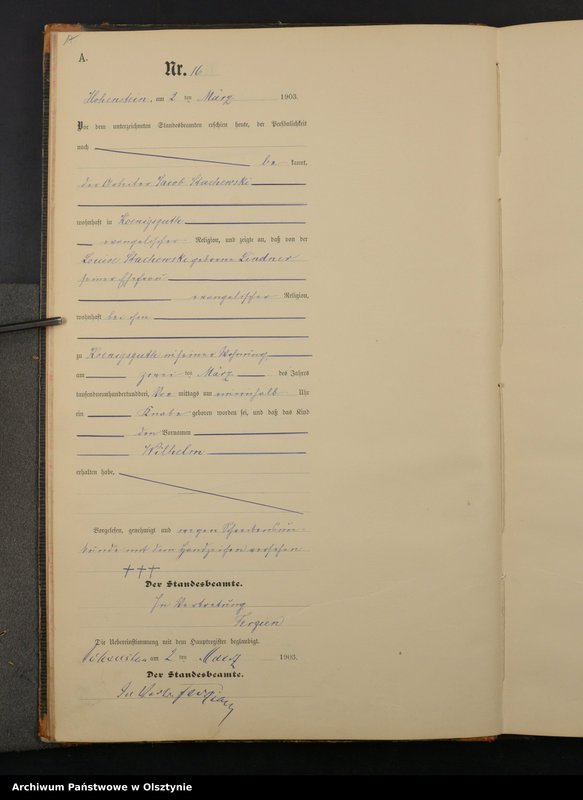 A.
Nr. 16
Hohenstein, am 2 ten März 1903.
Vor dem unterzeichneten Standesbeamten erschien heute, der Persönlichkeit
nach
be kannt,
der Arbeiter Jacob Stachewski
wohnhaft in Koenigsguth
evangelischer Religion, und zeigte an, daß von der
Louise Stachewski geborene Lindner
seiner Ehefrau
evangelischer Religion,
wohnhaft bei ihm
zu Koenigsguth in seiner Wohnung
am zwei ten März des Jahres
tausendneunhundertunddrei, Vor mittags um einein halb Uhr
ein Knabe geboren worden sei, und daß das Kind
den Vornamen
Wilhelm
erhalten habe.
Vorgelesen, genehmigt und wegen Schreibensun=
kunde mit dem Handzeichen versehen
+++
Der Standesbeamte.
In Vertretung
Die Uebereinstimmung mit dem Hauptregister beglaubigt.
Hohenstein am 2 ten März 1903.
Der Standesbeamte.
In Vertr.
Archiwum Państwowe w Olsztynie